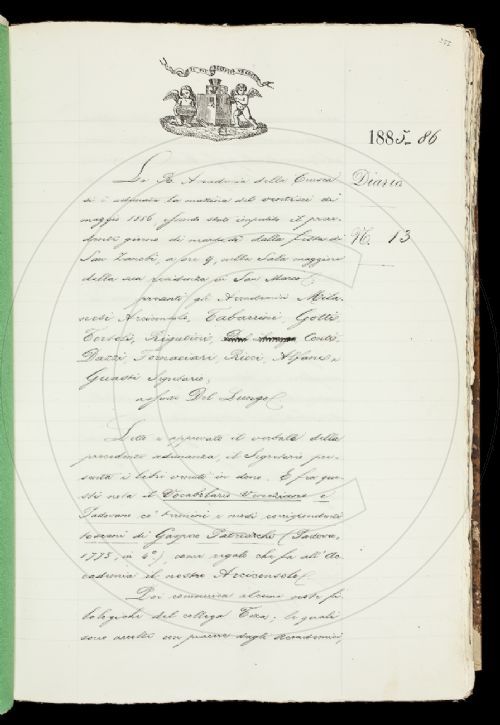 1885-86
La R. Accademia della Crusca
si è adunata la mattina del ventisei di
maggio 1886, essendo stato impedito il prece-
dente giorno di martedì dalla festa di
San Zanobi, a ore 9, nella Sala maggiore
della sua residenza in San Marco,
presenti gli Accademici Mila-
nesi Arciconsolo, Tabarrini, Gotti,
Tortoli, Rigutini, Conti,
Dazzi, Fornaciari, Ricci, Alfani e
Guasti Segretario;
assente Del Lungo.
Diario
N. 13
Letto e approvato il verbale della
precedente adunanza, il Segretario pre-
senta i libri venuti in dono. E fra que-
sti nota il Vocabolario Veneziano e
Padovano co' termini e modi corrispondenti
toscani di Gaspare Patriarchi (Padova,
1775, in 4°), come regalo che fa all'Ac-
cademia il nostro Arciconsolo.
Poi comunica alcune note fi-
lologiche del collega Tosa; le quali
sono accolte con piacere dagli Accademici,